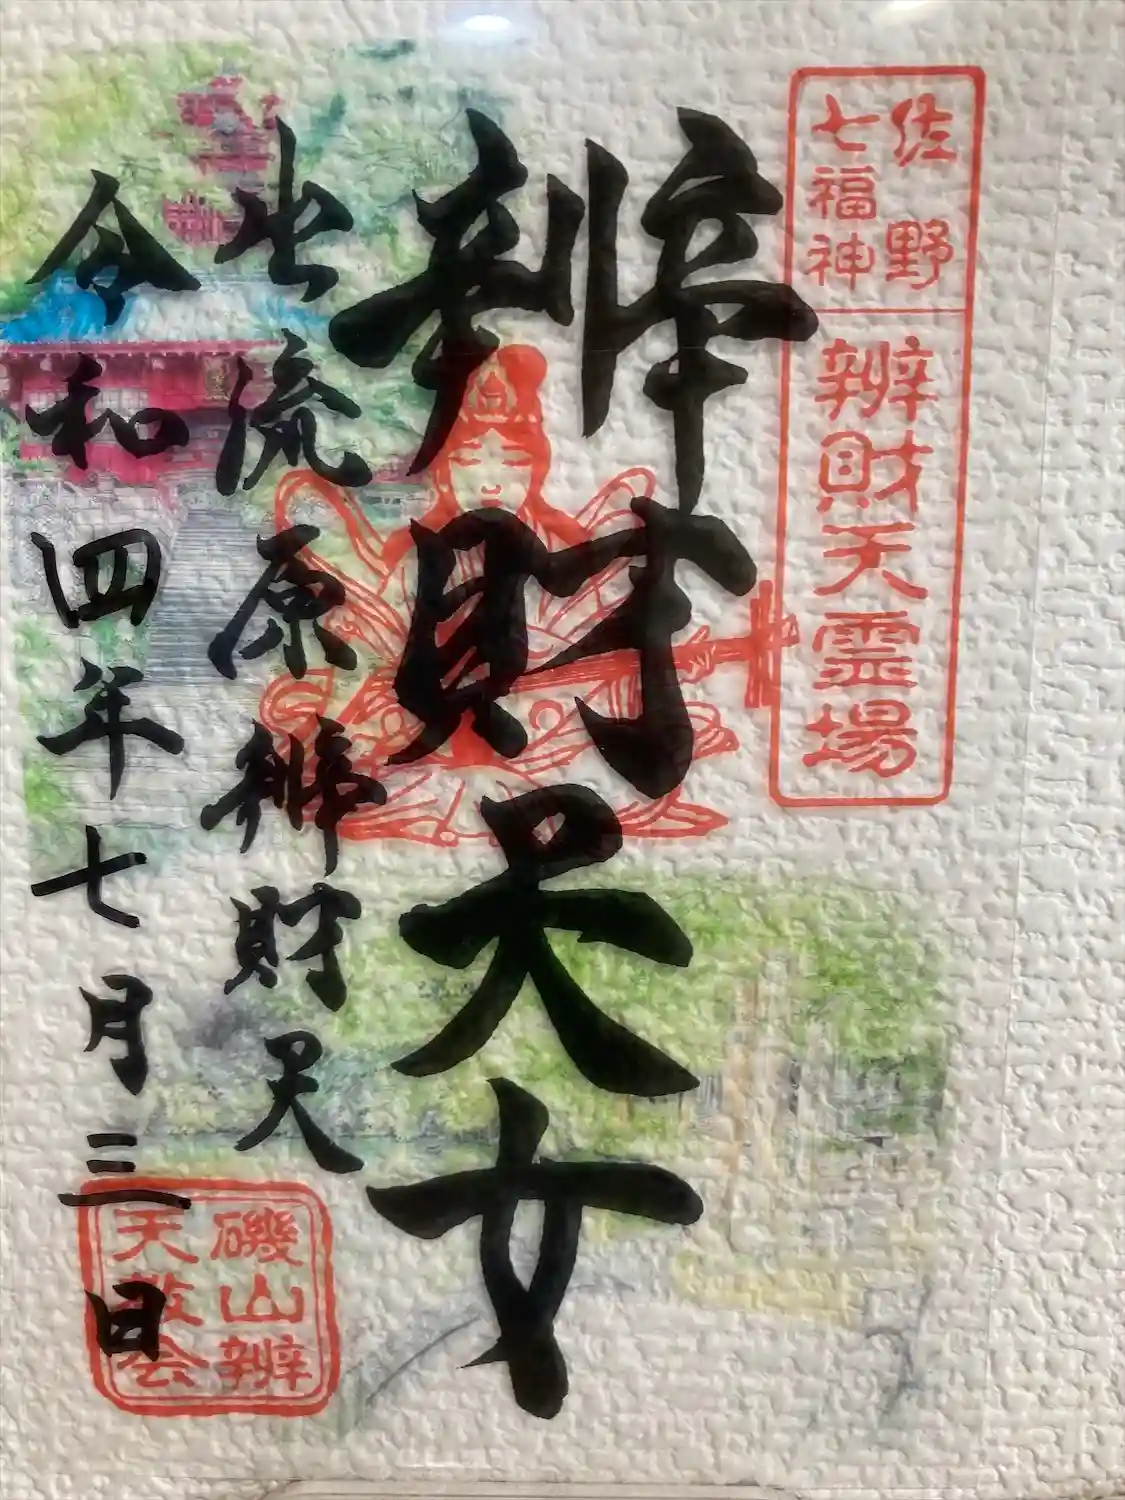 佐野
七福神
辨財天霊場
辨財天女
出流原辨財天
令和四年七月三日
磯山辨
天
会